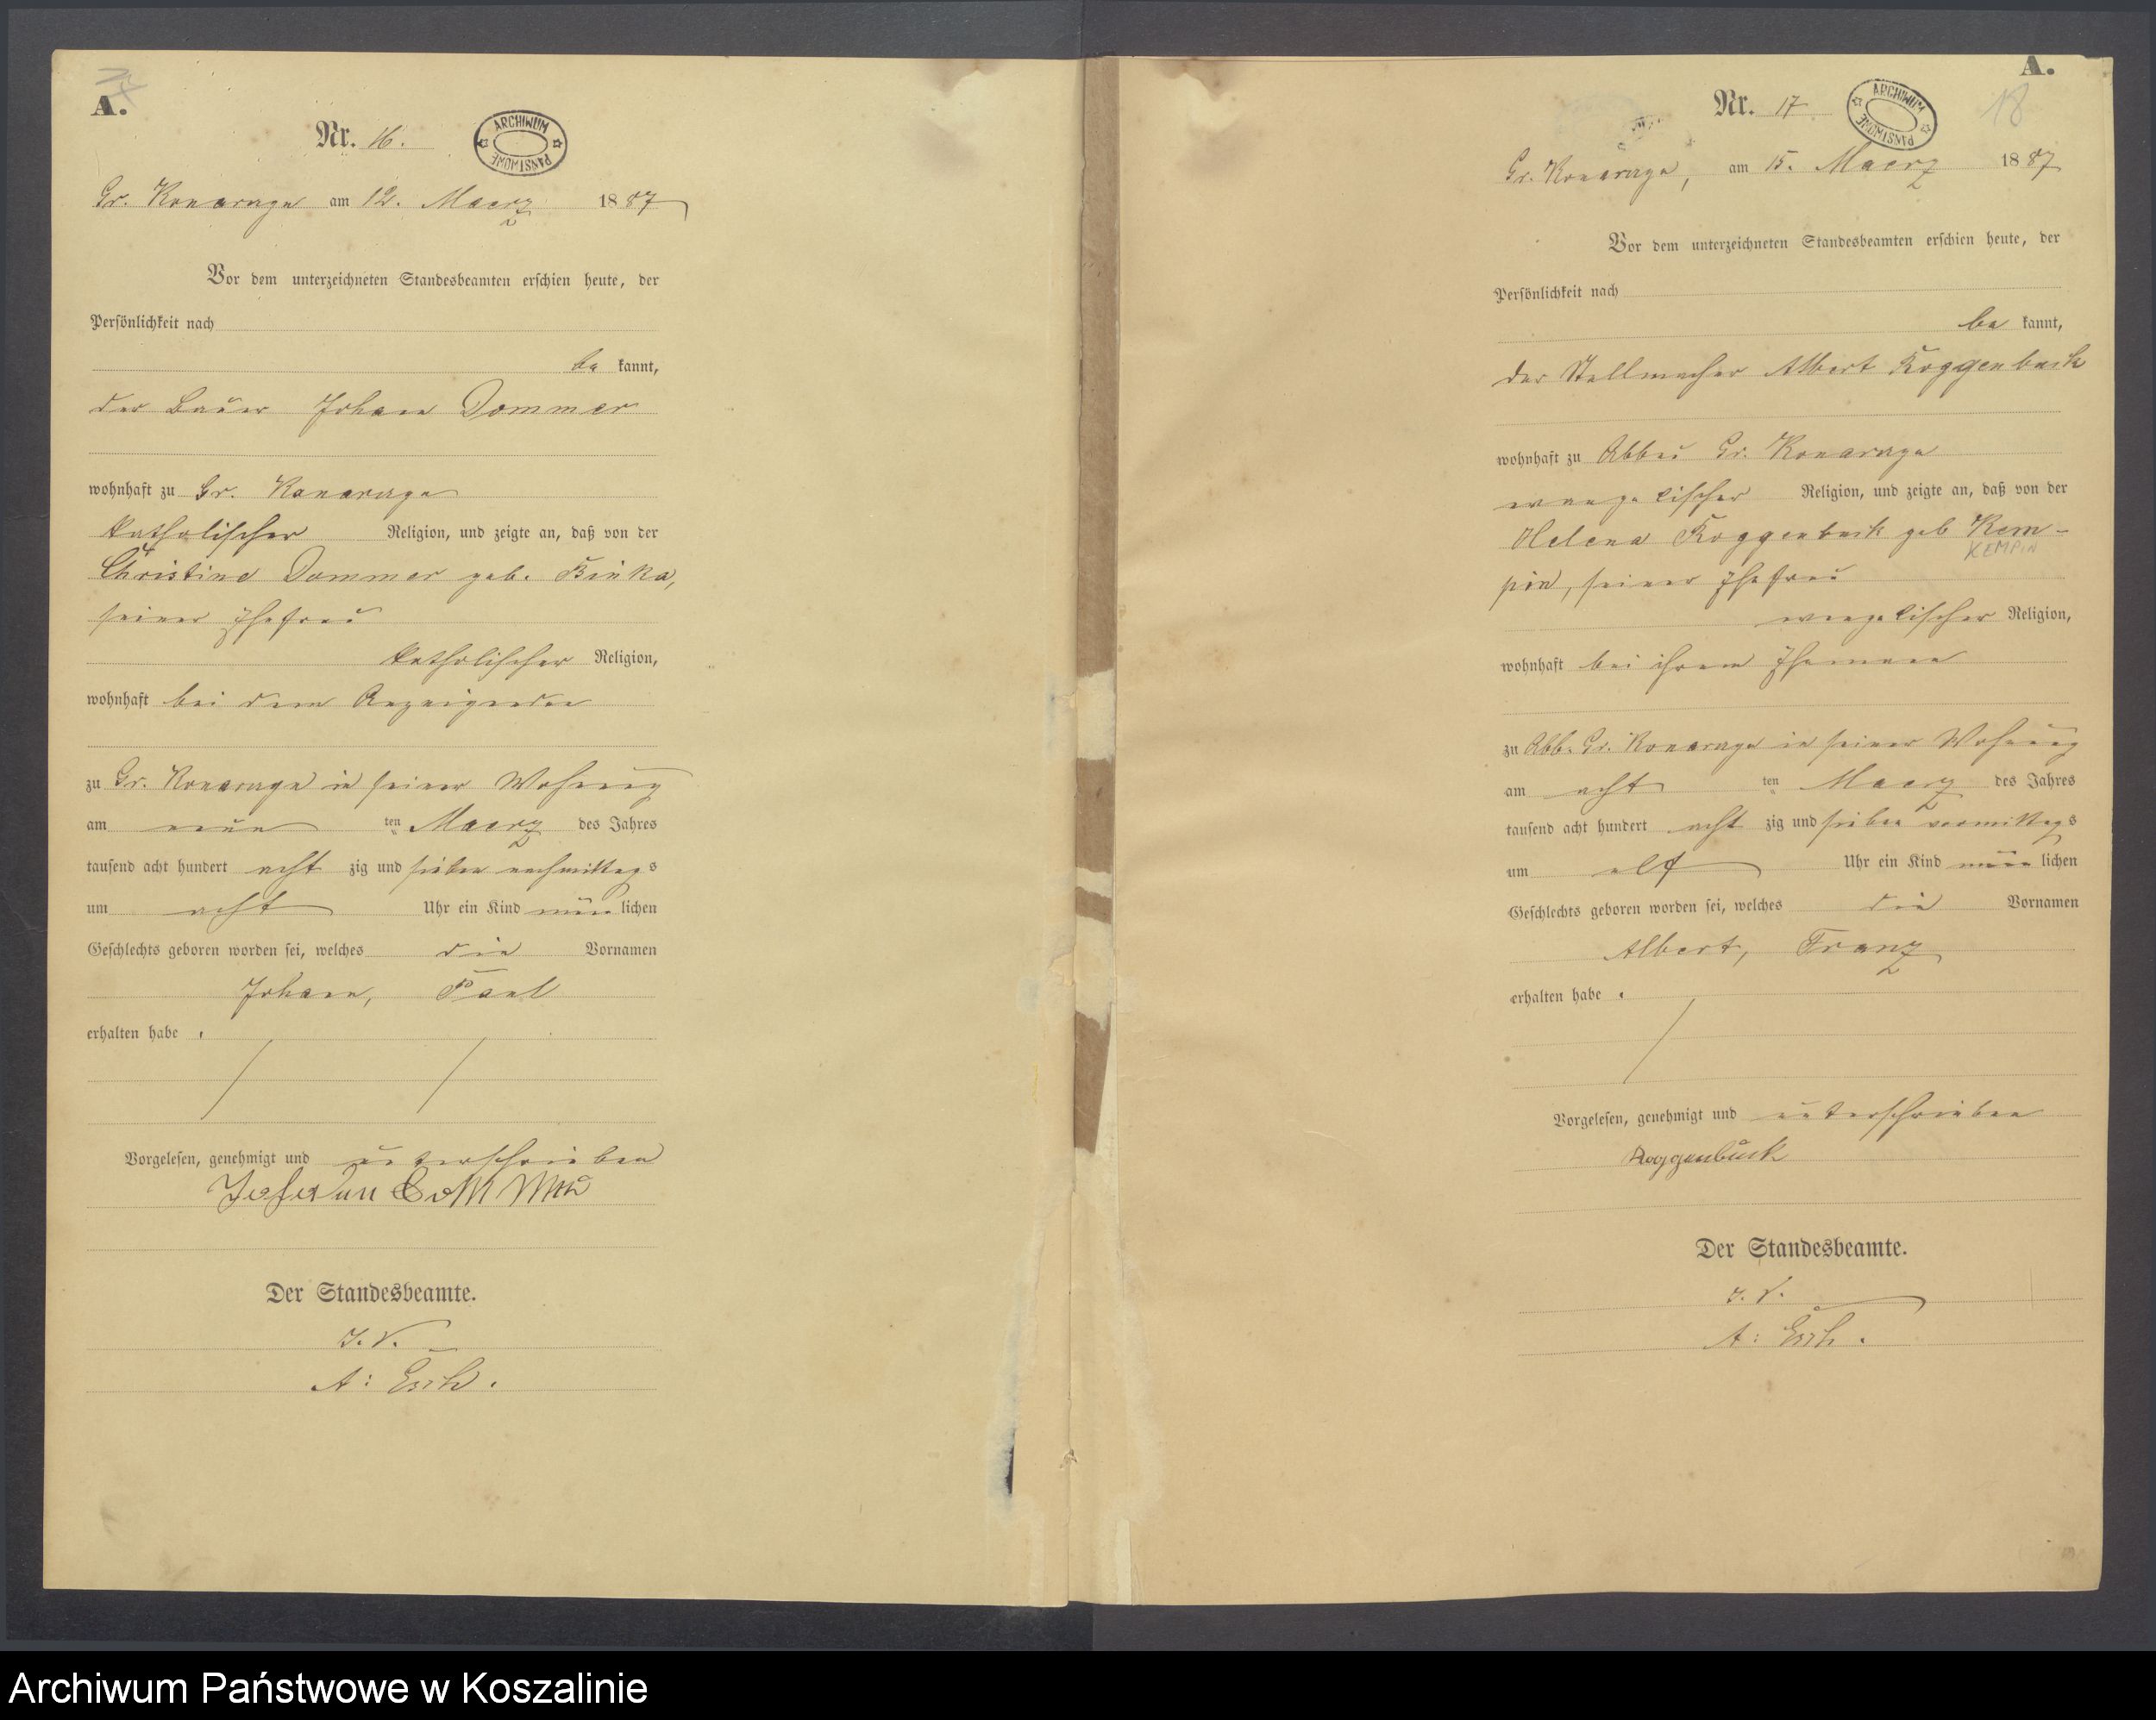 A.
Nr. 16.
ARCHIWUM PAŃSTWOWE
Gr. Konarzyn am 12. Maerz 1887
Vor dem unterzeichneten Standesbeamten erschien heute, der
Persönlichkeit nach
be kannt,
der Bauer Johann Dommer
wohnhaft zu Gr. Konarzyn
katholischer Religion, und zeigte an, daß von der
Christine Dommer geb. Binka,
seiner Ehefrau
katholischer Religion,
wohnhaft bei dem Anzeigenden
zu Gr. Konarzyn in seiner Wohnung
am neun ten Maerz des Jahres
tausend acht hundert acht zig und sieben nachmittags
um acht Uhr ein Kind männlichen
Geschlechts geboren worden sei, welches die Vornamen
Johann, Paul
erhalten habe.
Vorgelesen, genehmigt und unterschrieben
Der Standesbeamte.
J. V.
A:
A.
Nr. 17
ARCHIWUM PAŃSTWOWE
18
Gr. Konarzyn, am 15. Maerz 1887
Vor dem unterzeichneten Standesbeamten erschien heute, der
Persönlichkeit nach
be kannt,
der Stellmacher Albert Roggenbuck
wohnhaft zu Abbau Gr. Konarzyn
evangelischer Religion, und zeigte an, daß von der
Helena Roggenbuck geb Kem-
KEMPIN
pin, seiner Ehefrau
evangelischer Religion,
wohnhaft bei ihrem Ehemann
zu Abb. Gr. Konarzyn in seiner Wohnung
am acht ten Maerz des Jahres
tausend acht hundert acht zig und sieben vormittags
um elf Uhr ein Kind männlichen
Geschlechts geboren worden sei, welches die Vornamen
Albert, Franz
erhalten habe.
Vorgelesen, genehmigt und unterschrieben
Roggenbuck
Der Standesbeamte.
J. V.
A:
Archiwum Państwowe w Koszalinie